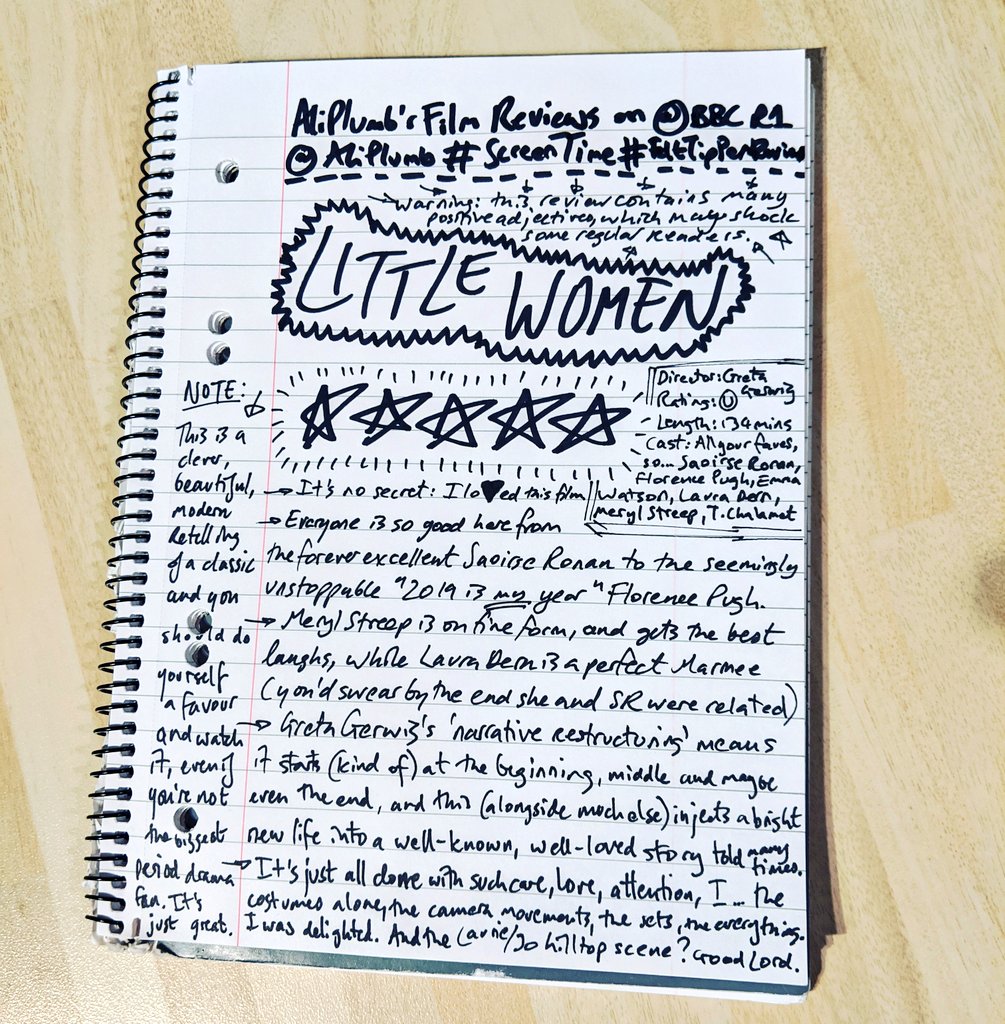 AliPlumb's Film Reviews on @BBC R1
@AliPlumb #ScreenTime #FeltTipPenReviews
Warning: this review contains many
positive adjectives, which may shock
some regular readers.
LITTLE WOMEN
Director: Greta
Gerwig
Rating: U
Length: 134 mins
Cast: All your faves,
so... Saoirse Ronan,
Florence Pugh, Emma
Watson, Laura Dern,
Meryl Streep, T. Chalamet
NOTE:
This is a
clever,
beautiful,
modern
retelling
of a classic
and you
should do
yourself
a favour
and watch
it, even if
you're not
the biggest
period drama
fan. It's
just great.
→ It's no secret: I lo♥ed this film
→ Everyone is so good here from
the forever excellent Saoirse Ronan to the seemingly
unstoppable "2019 is my year" Florence Pugh.
→ Meryl Streep is on fine form, and gets the best
laughs, while Laura Dern is a perfect Marmee
(you'd swear by the end she and SR were related)
→ Greta Gerwig's 'narrative restructuring' means
it starts (kind of) at the beginning, middle and maybe
even the end, and this (alongside much else) injects a bright
new life into a well-known, well-loved story told many times.
→ It's just all done with such care, love, attention, I... the
costumes alone, the camera movements, the sets, the everything.
I was delighted. And the Laurie/Jo hilltop scene? Good Lord.